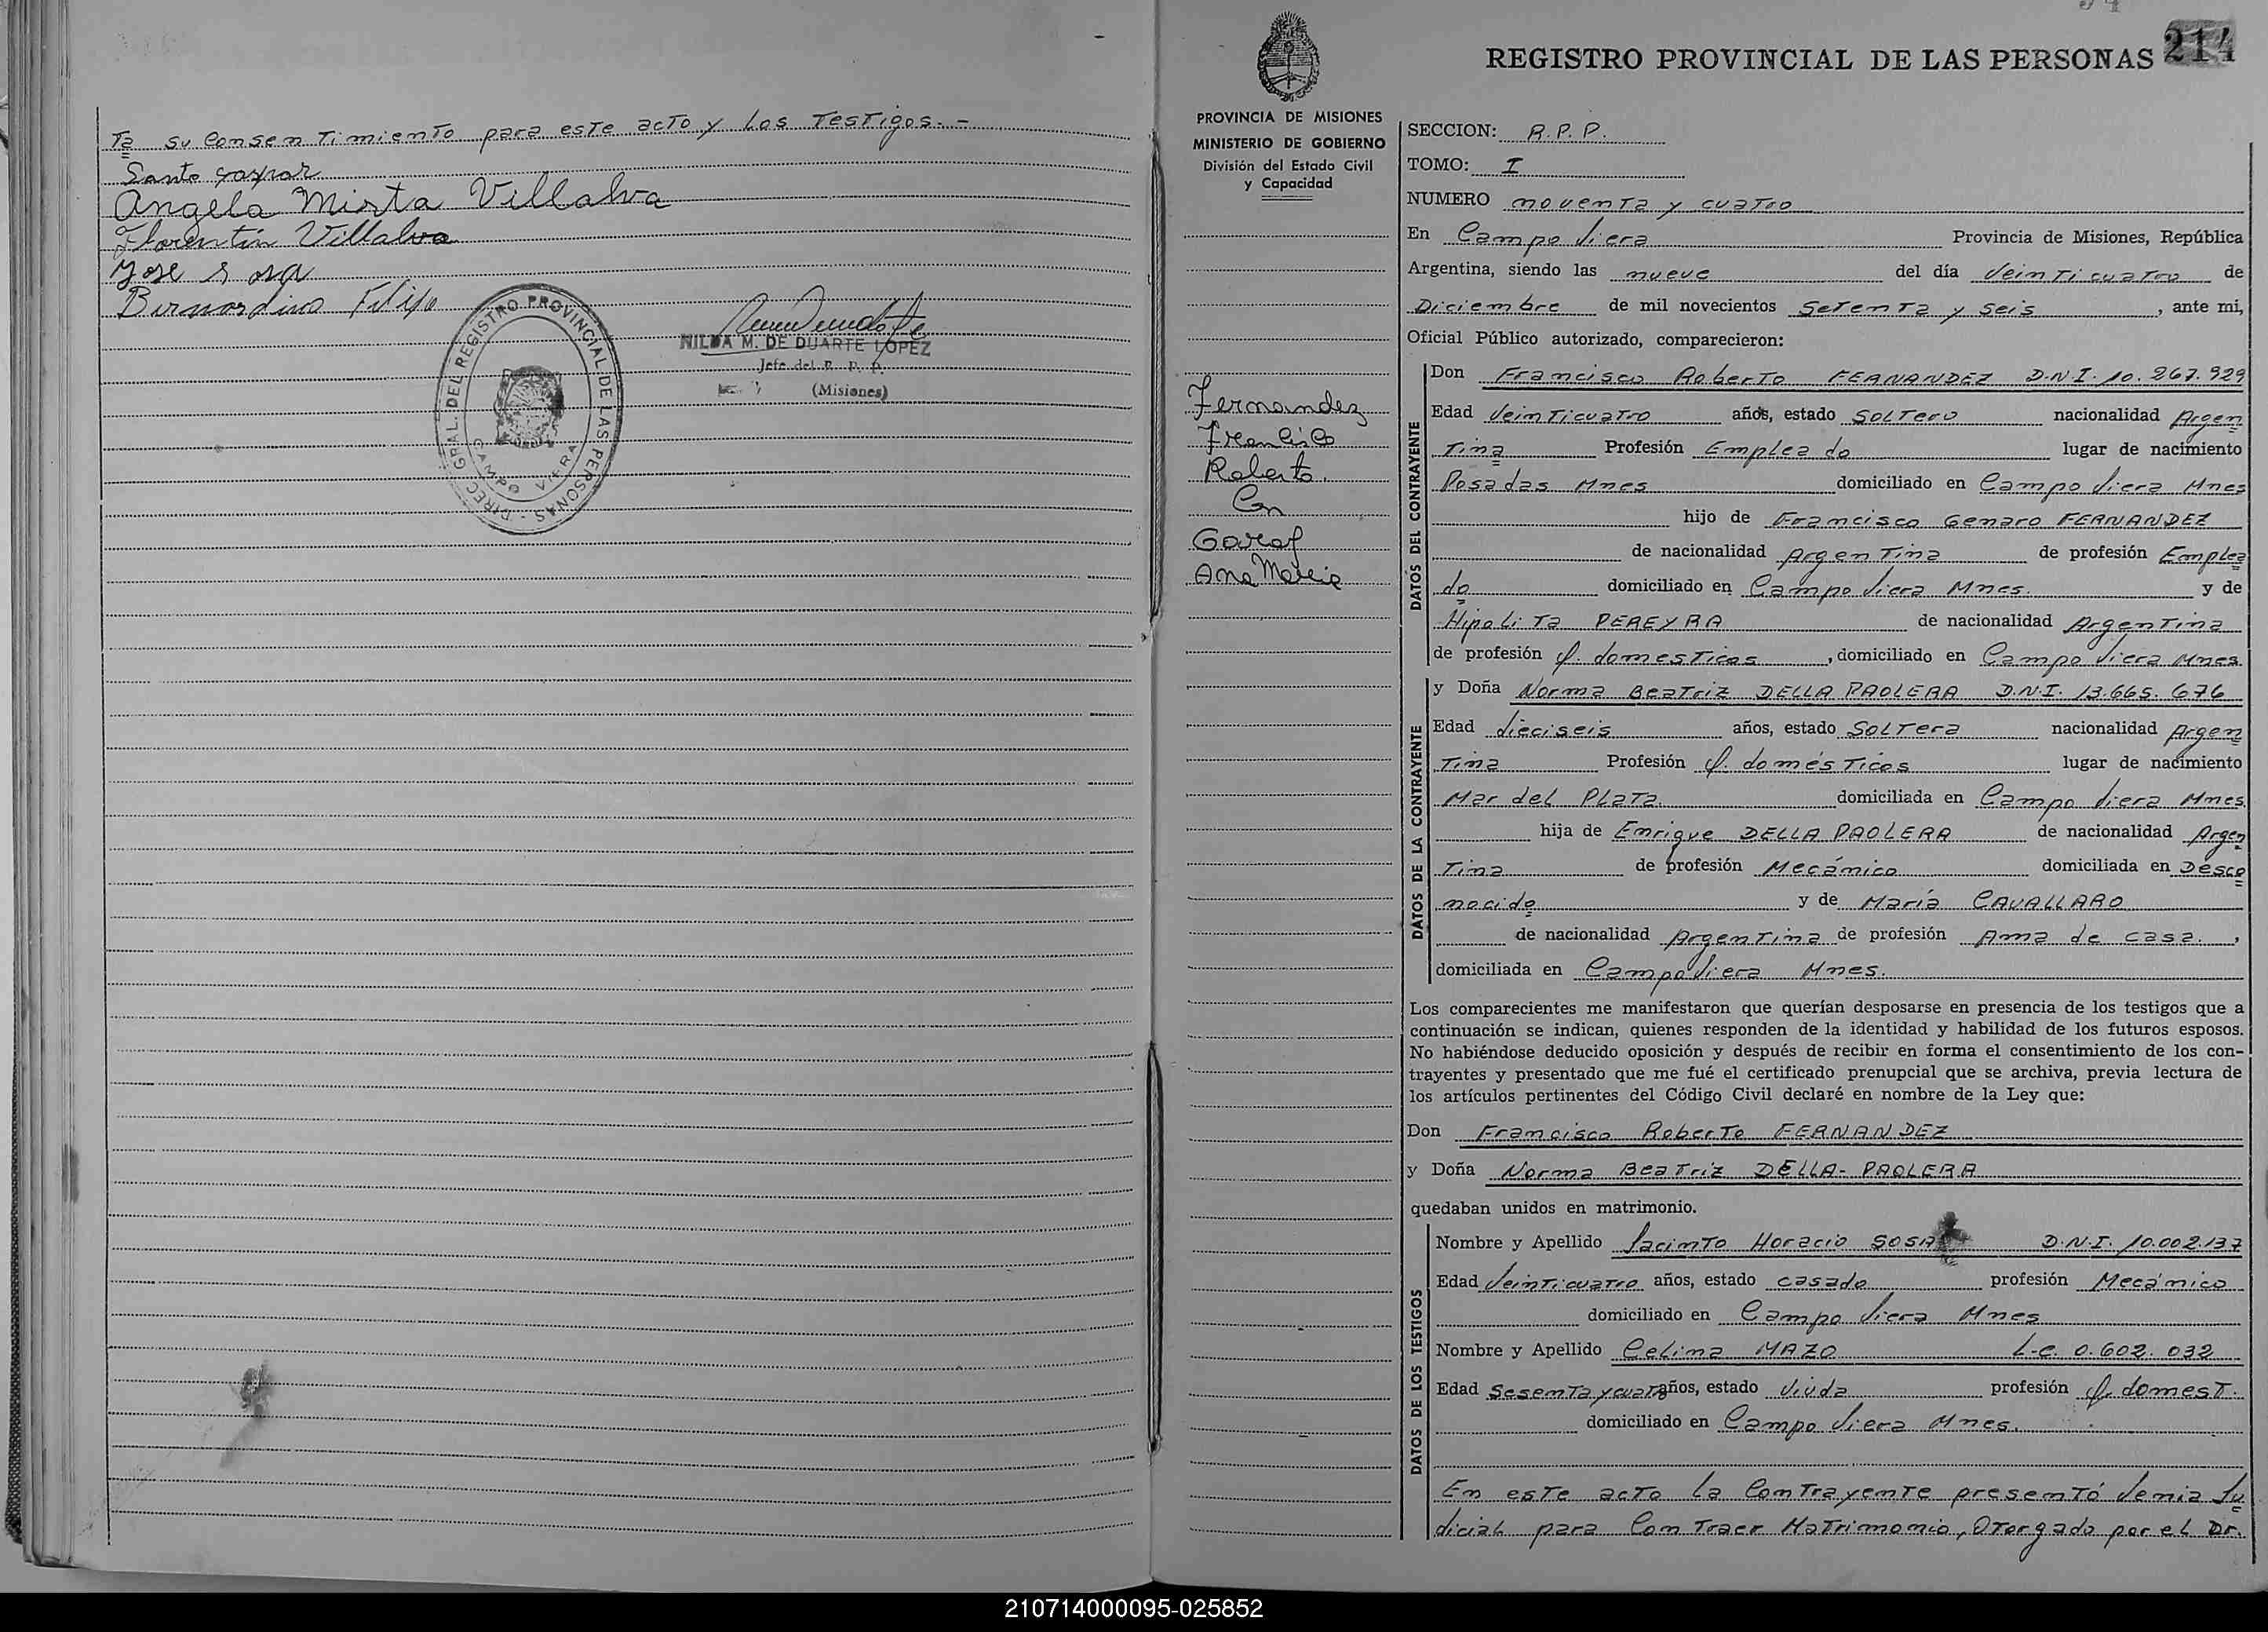 ta su consentimiento para este acto y los testigos.-
Santo gaspar
Angela Mirta Villalva
Florentín Villalva
Jose Sosa
Bernardino
DIREC. GRAL. DEL REGISTRO PROVINCIAL DE LAS PERSONAS -
CAMPO VIERA
NILDA M. DE DUARTE LOPEZ
Jefe del R. P. P.
(Misiones)
214
REGISTRO PROVINCIAL DE LAS PERSONAS
PROVINCIA DE MISIONES
MINISTERIO DE GOBIERNO
División del Estado Civil
y Capacidad
Fernandez
Francisco
Roberto.
Con
Ana Maria
SECCION: R.P.P.
TOMO: I
NUMERO noventa y cuatro
En Campo Viera Provincia de Misiones, República
Argentina, siendo las nueve del día Veinticuatro de
Diciembre de mil novecientos Setenta y seis , ante mi,
Oficial Público autorizado, comparecieron:
DATOS DEL CONTRAYENTE
Don Francisco Roberto FERNANDEZ D.N.I. 10.267.929
Edad Veinticuatro años, estado soltero nacionalidad Argen
tina Profesión Emplea do lugar de nacimiento
Posadas Mnes domiciliado en Campo Viera Mnes
hijo de Francisco Genaro FERNANDEZ
de nacionalidad Argentina de profesión Emplea
do domiciliado en Campo Viera Mnes. y de
Hipolita PEREYRA de nacionalidad Argentina
de profesión q. domesticos , domiciliado en Campo Viera Mnes.
DATOS DE LA CONTRAYENTE
y Doña Norma Beatriz DELLA PAOLERA D.N.I. 13.665.676
Edad dieciseis años, estado Soltera nacionalidad Argen
tina Profesión q. domésticos lugar de nacimiento
Mar del Plata. domiciliada en Campo Viera Mnes.
hija de Enrique DELLA PAOLERA de nacionalidad Argen
tina de profesión Mecánico domiciliada en Desco
nocido y de María CAVALLARO
de nacionalidad Argentina de profesión Ama de casa. ,
domiciliada en Campo Viera Mnes.
Los comparecientes me manifestaron que querían desposarse en presencia de los testigos que a
continuación se indican, quienes responden de la identidad y habilidad de los futuros esposos.
No habiéndose deducido oposición y después de recibir en forma el consentimiento de los con-
trayentes y presentado que me fué el certificado prenupcial que se archiva, previa lectura de
los artículos pertinentes del Código Civil declaré en nombre de la Ley que:
Don Francisco Roberto FERNANDEZ
y Doña Norma Beatriz DELLA-PAOLERA
quedaban unidos en matrimonio.
DATOS DE LOS TESTIGOS
Nombre y Apellido Jacinto Horacio SOSA D.N.I. 10.002.137
Edad Veinticuatro años, estado casado profesión Mecánico
domiciliado en Campo Viera Mnes
Nombre y Apellido Celina MAZO L.C. 0.602.032
Edad Sesenta y cuatro años, estado viuda profesión q. domest.
domiciliado en Campo Viera Mnes.
En este acto la contrayente presentó Venia Ju
dicial para Contraer Matrimonio, Otorgado por el Dr.
210714000095-025852